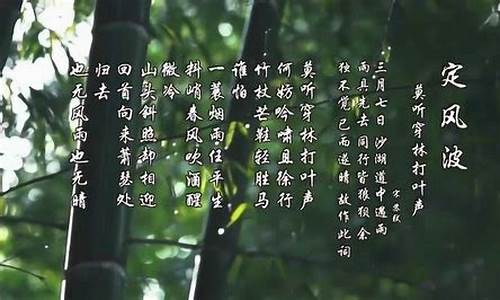 定风波
莫听穿林打叶声
宋 苏轼
三月七日沙湖道中遇雨
雨具先去同行皆狼狈余
独不觉 已而遂晴 故作此词
莫听穿林打叶声
何妨吟啸且徐行
竹杖芒鞋轻胜马
谁怕
一蓑烟雨任平生
料峭春风吹酒醒
微冷
山头斜照却相迎
回首向来萧瑟处
归去
也无风雨也无晴